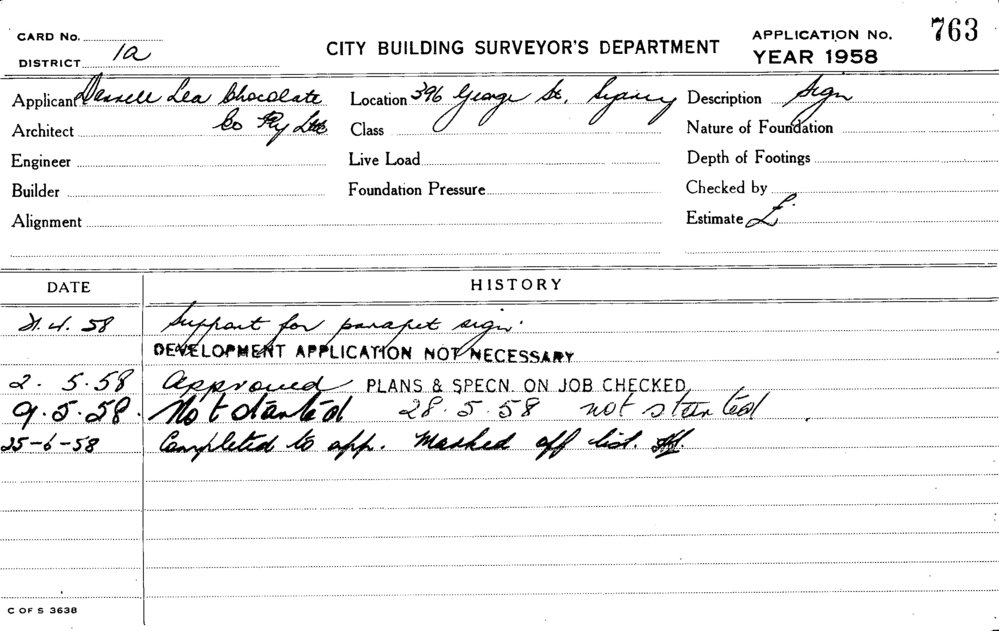 CARD No.
DISTRICT 1a
CITY BUILDING SURVEYOR'S DEPARTMENT
APPLICATION No. 763
YEAR 1958
Applicant Darrell Lea Chocolate Co Pty Ltd
Location 396 George St, Sydney
Description Sign
Architect
Class
Nature of Foundation
Engineer
Live Load
Depth of Footings
Builder
Foundation Pressure
Checked by
Alignment
Estimate £
DATE HISTORY
4. 58 Support for parapet sign.
DEVELOPMENT APPLICATION NOT NECESSARY
2. 5. 58 Approved PLANS & SPECN. ON JOB CHECKED
9. 5. 58. Not started 28. 5. 58 not started
25-6-58 Completed to app. Marked off list.
C OF S 3638